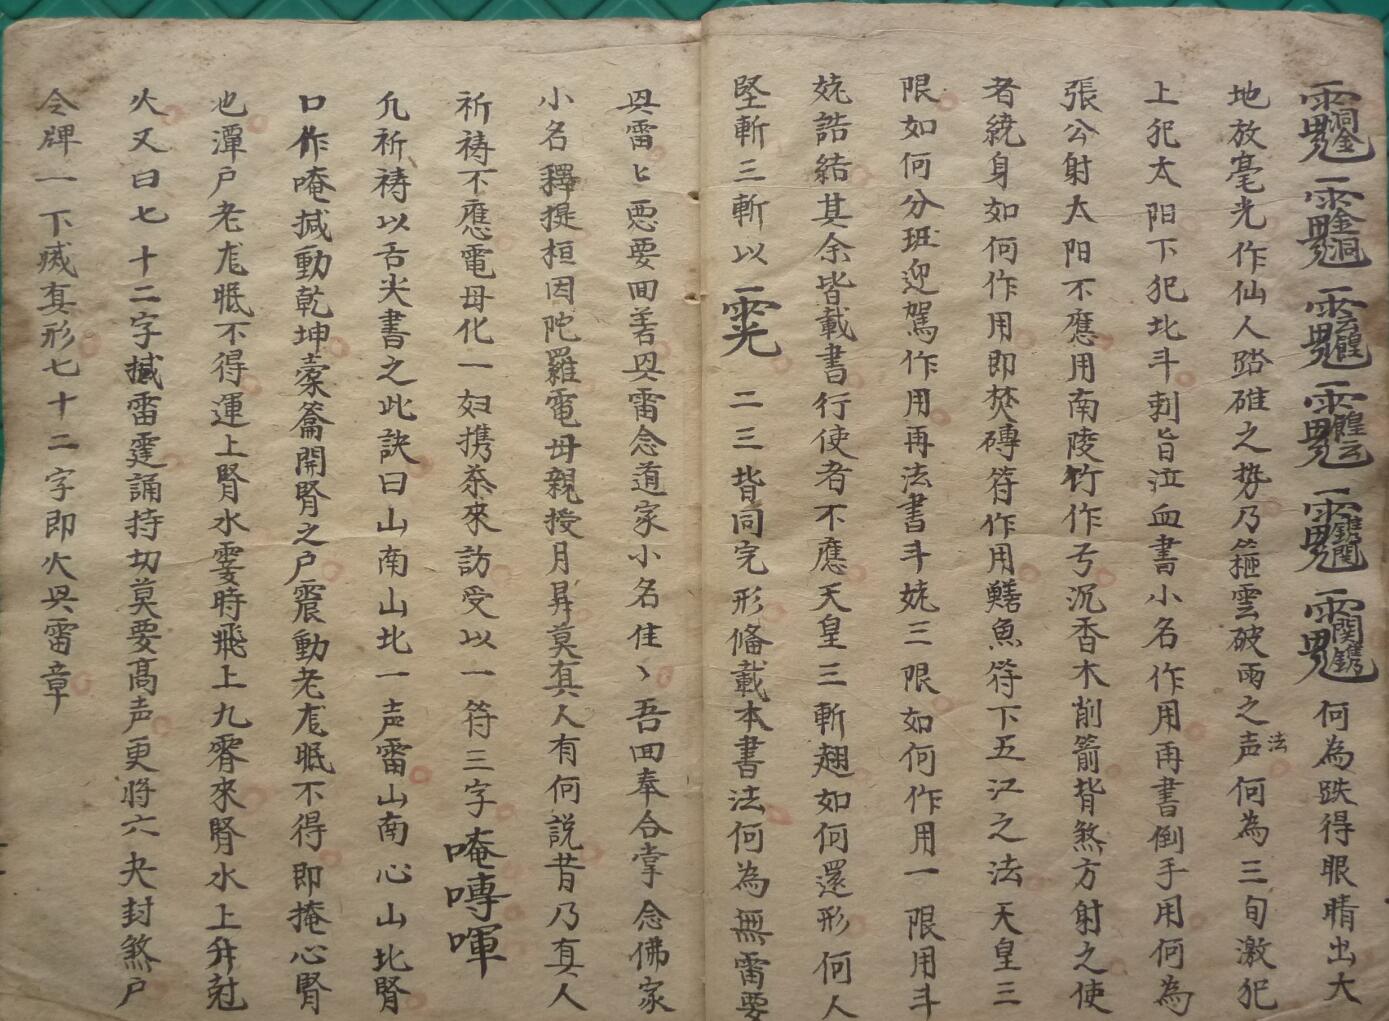 何為跌得眼睛出大
地放毫光作仙人踏碓之勢乃箍雲破雨之声法何為三旬激犯
上犯太阳下犯北斗刺旨泣血書小名作用再書倒手用何為
張公射太阳不應用南陵竹作弓沉香木削箭背煞方射之使
者繞身如何作用即焚磚符作用鱔魚符下五江之法天皇三
限如何分班迎駕作用再法書斗㚫三限如何作用一限用斗
㚫誥結其余皆載書行使者不應天皇三斬翅如何還形何人
堅斬三斬以 二三皆同完形俻載本書法何為無雷要
㒷雷匕悪要囬若㒷雷念道家小名隹丶吾囬奉合掌念佛家
小名釋提桓因陀羅電母親授月昇莫真人有何説昔乃真人
祈祷不應電母化一妇携茶來訪受以一符三字唵嚩㖶
凢祈祷以舌尖書之此訣曰山南山北一声雷山南心山北腎
口作唵揻動乾坤橐籥開腎之户震動老尨眠不得即掩心腎
也潭户老尨眠不得運上腎水霎時飛上九霄來腎水上升尅
火又曰七十二字撼雷霆誦持切莫要高声更将六夬封煞户
令牌一下或真形七十二字即火㒷雷章